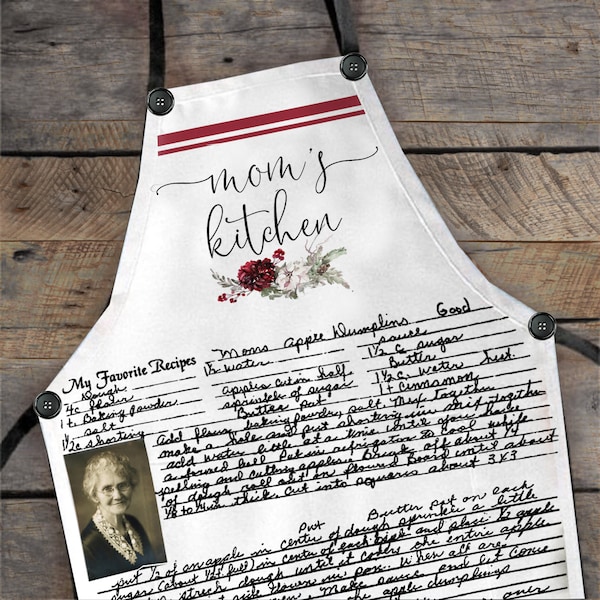 mom's
kitchen
Moms Apple Dumplins Good
My Favorite Recipes
1½ water
sause
Dough
Apples cut in half
1½ C sugar
sprinkle of sugar
Butter
1 t Baking Powder
Butter Pat
1½ C. Water Hot
salt
1 t Cinnamon
Add flour, baking powder, salt Mix Together
make a hole and put shorting in mix together
add water little at a time until you have
a dough ball Put in refrigation to Cool while
pelling and cutting apples break off about ¼
of dough roll out on floured Board until about
thick. Cut into squares about 3X3
Put Butter pat on each
put ½ of an apple in center of dough sprinkle a little
sugar (about ¼ t full) in center of each and place ½ apple
stretch dough until it covers the entire apple
side down in pan. When all are
Make sauce and let come
the apple dumplings
over